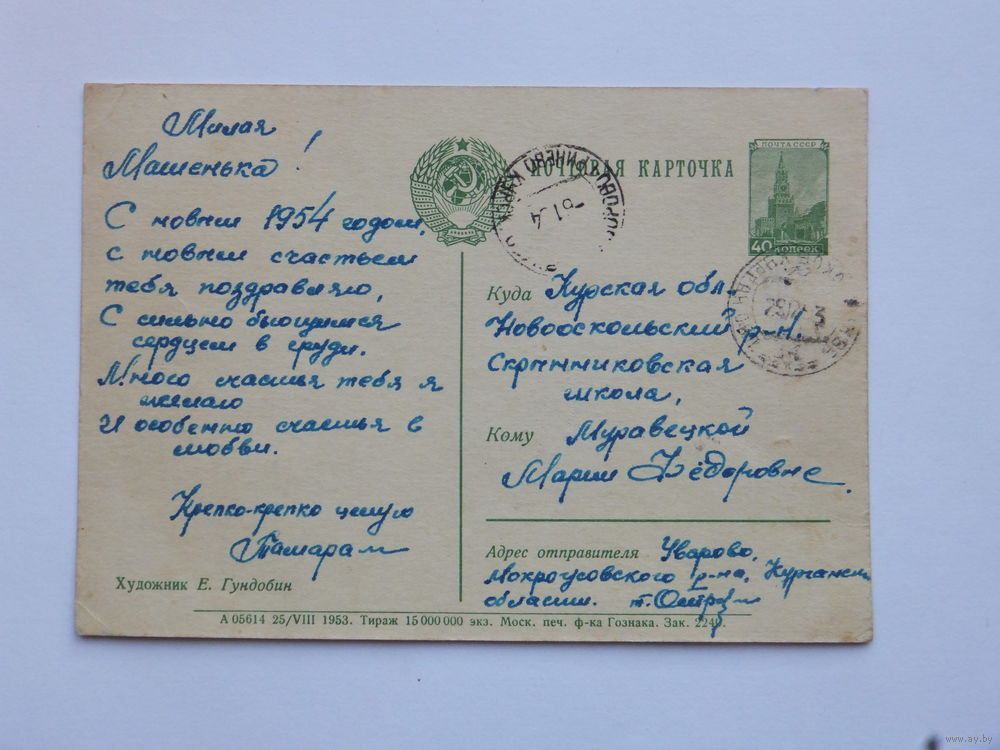 Милая
Машенька!
С новым 1954 годом,
с новым счастьем
тебя поздравляю,
С сильно бьющимся
сердцем в груди.
Много счастья тебя я
желаю
И особенно счастья в
любви.
Крепко-крепко целую
Тамара
Художник Е. Гундобин
ПОЧТОВАЯ КАРТОЧКА
ПОЧТА СССР
40 копеек
Куда Курская обл.
Новооскольский р-н.
Скрынниковская
школа,
Кому Муравецкой
Марии Фёдоровне.
Адрес отправителя Уварово,
Мокроусовского р-на, Курганск
области. т.
А 05614 25/VIII 1953. Тираж 15 000 000 экз. Моск. печ. ф-ка Гознака. Зак. 2240.
www.ay.by